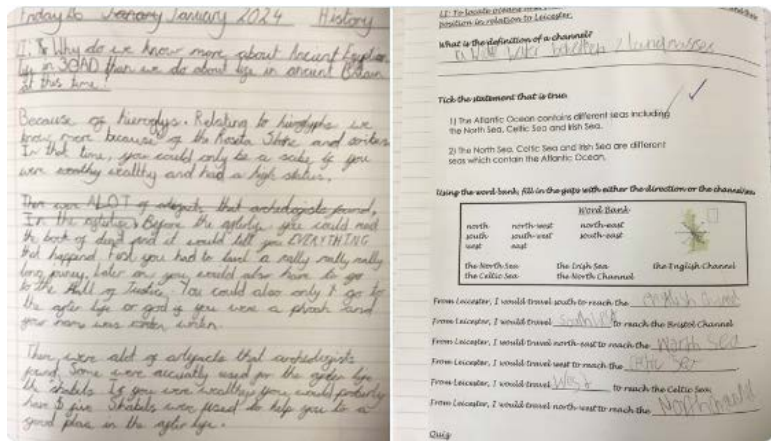 Friday 26 January January 2024 History
LI: Why do we know more about Ancient Egyptian
life in 30AD than we do about life in ancient Britain
at this time?
Because of hieroglys. Relating to hieroglyphs we
know more because of the Roseta Stone and scribes
In that time, you could only be a scribe if you
were wealthy wealthy and had a high status.
There were ALOT of that archeologists found.
In the afterlife, Before the afterlife you could read
the book of dead and it would tell you EVERYTHING
that happend. First you had to travel a really really really
long journey. Later on you would also have to go
to the Hall of Justice. You could also only go to
the after life or god if you were a and
your name was written.
There were alot of artefacts that archeologists
found. Some were accually used for the after life
like shabtis. If you were wealthy you would probably
have 5 Shabtis were used to help you to a
good place in the after life.
LI: To locate oceans
position in relation to Leicester.
What is the definition of a channel?
a between 2 landmasses
Tick the statement that is true.
1) The Atlantic Ocean contains different seas including
the North Sea, Celtic Sea and Irish Sea.
2) The North Sea, Celtic Sea and Irish Sea are different
seas which contain the Atlantic Ocean.
Using the word bank, fill in the gaps with either the direction or the channel/sea.
Word Bank
north north-west north-east
south south-west south-east
west east
the North Sea the Irish Sea the English Channel
the Celtic Sea the North Channel
From Leicester, I would travel south to reach the English
From Leicester, I would travel to reach the Bristol Channel
From Leicester, I would travel north-east to reach the North Sea
From Leicester, I would travel west to reach the Sea
From Leicester, I would travel West to reach the Celtic Sea
From Leicester, I would travel north-west to reach the North
Quiz